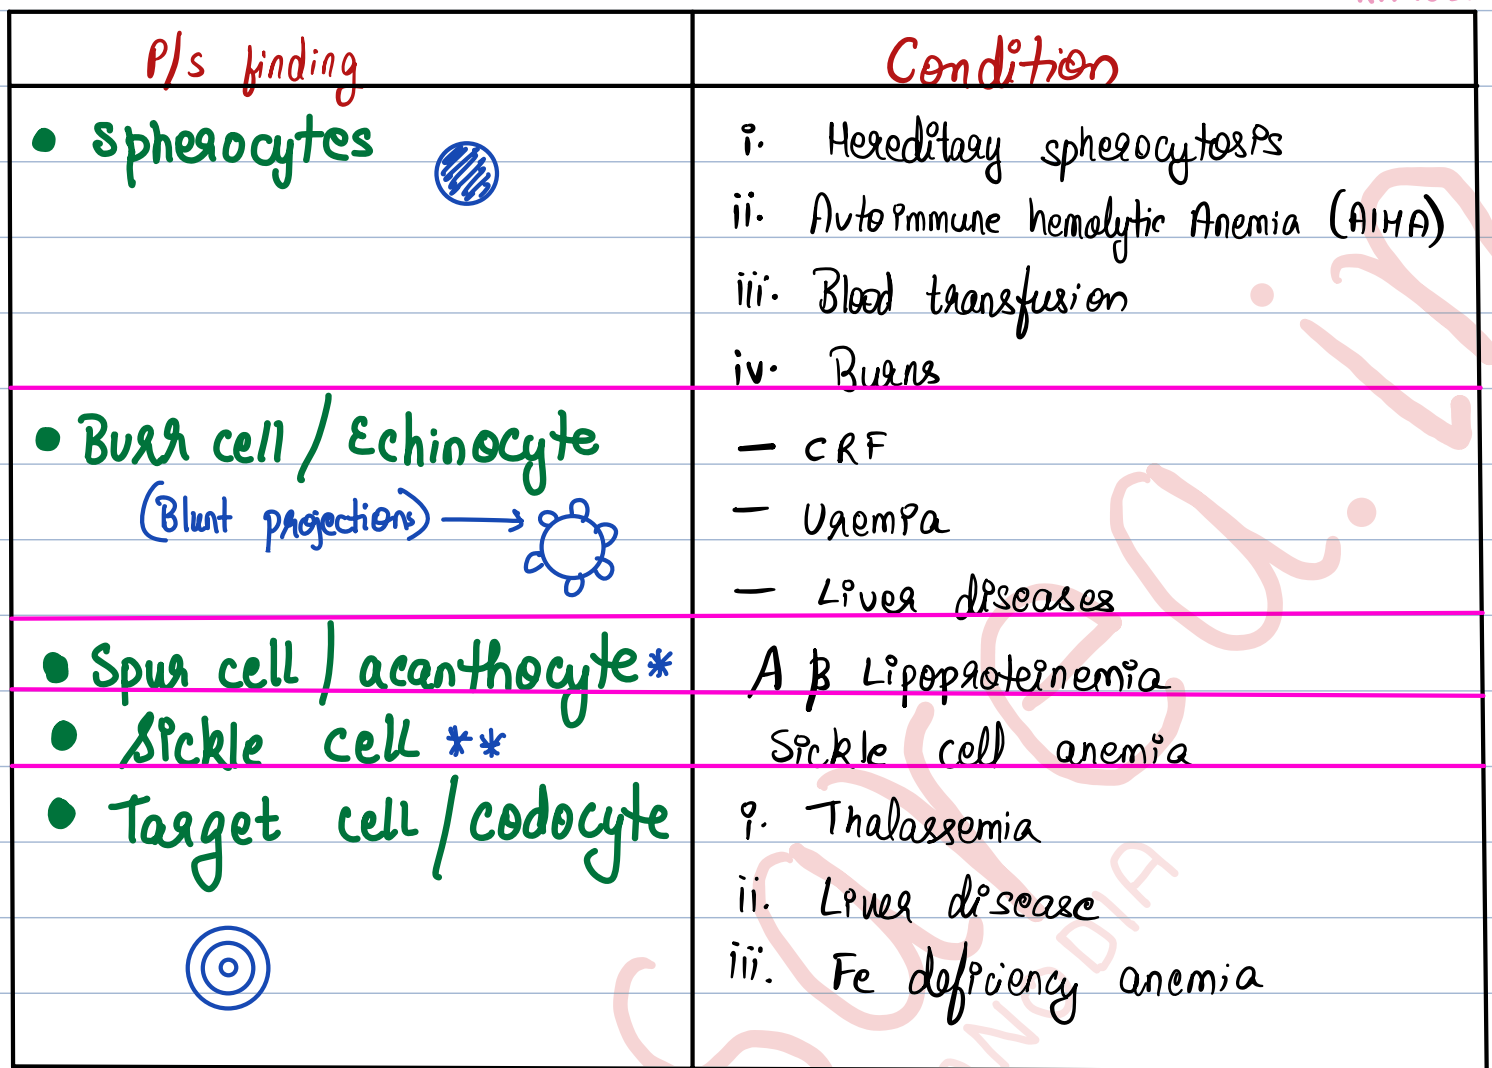 P/s finding
Condition
• Spherocytes
i. Hereditary spherocytosis
ii. Autoimmune hemolytic Anemia (AIHA)
iii. Blood transfusion
iv. Burns
• Burr cell / Echinocyte
(Blunt projections) →
— CRF
— Uremia
— Liver diseases
• Spur cell / acanthocyte *
A β Lipoproteinemia
• Sickle cell **
Sickle cell anemia
• Target cell / codocyte
i. Thalassemia
ii. Liver disease
iii. Fe deficiency anemia